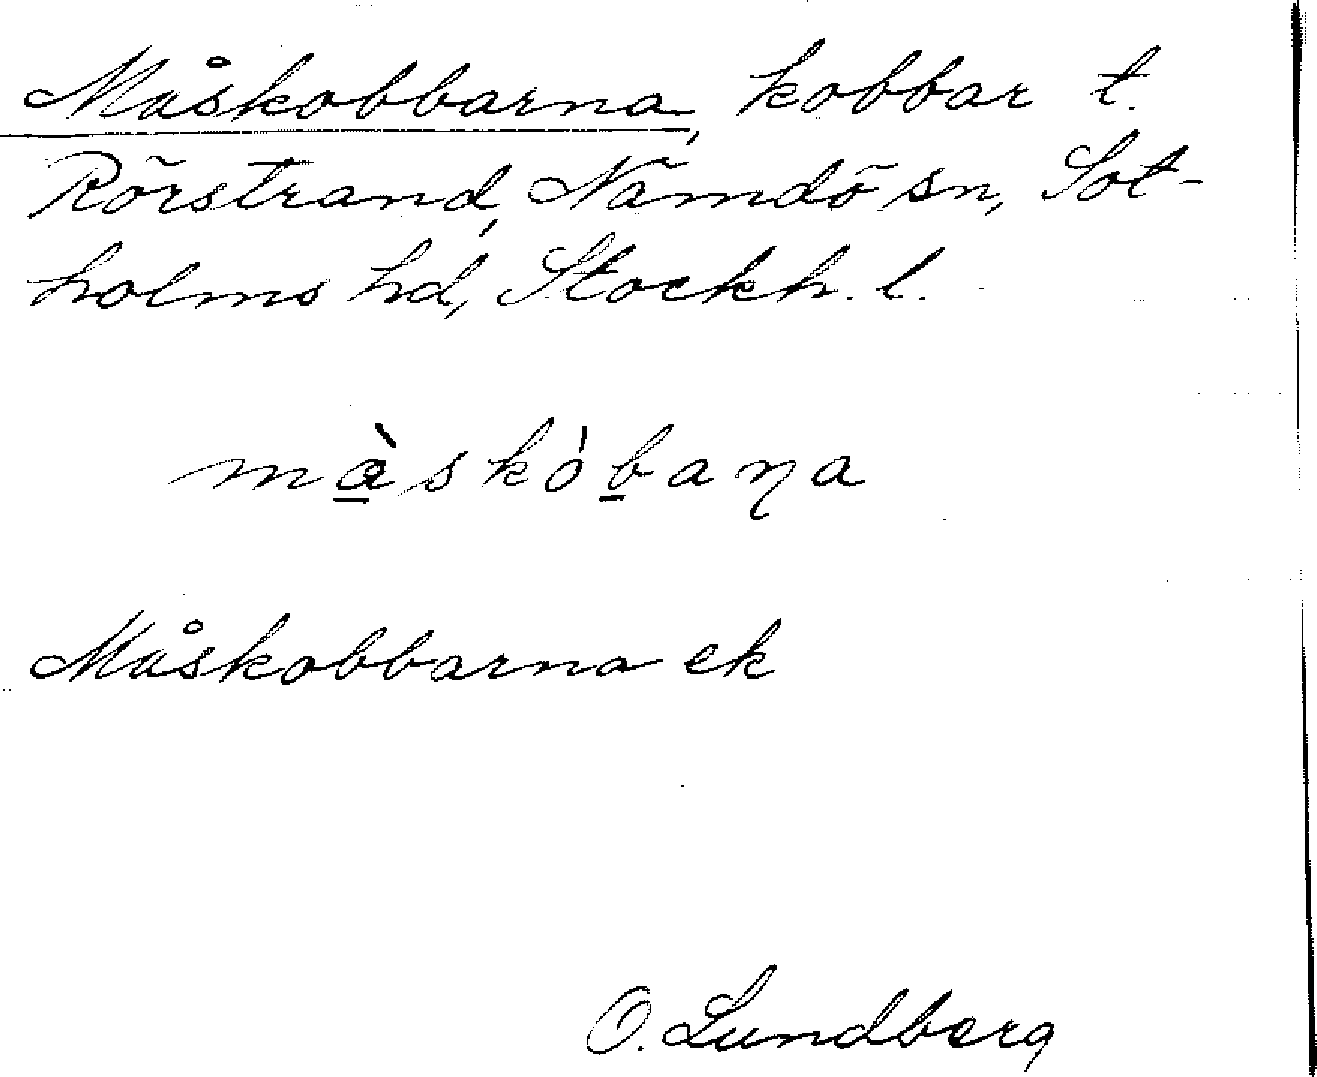 Måskobbarna, kobbar t.
Rörstrand, Nämdö sn, Sot-
holms hd, Stockh. l.
mɑ̲̀skób̲aɳa
Måskobbarna ek
O. Lundberg